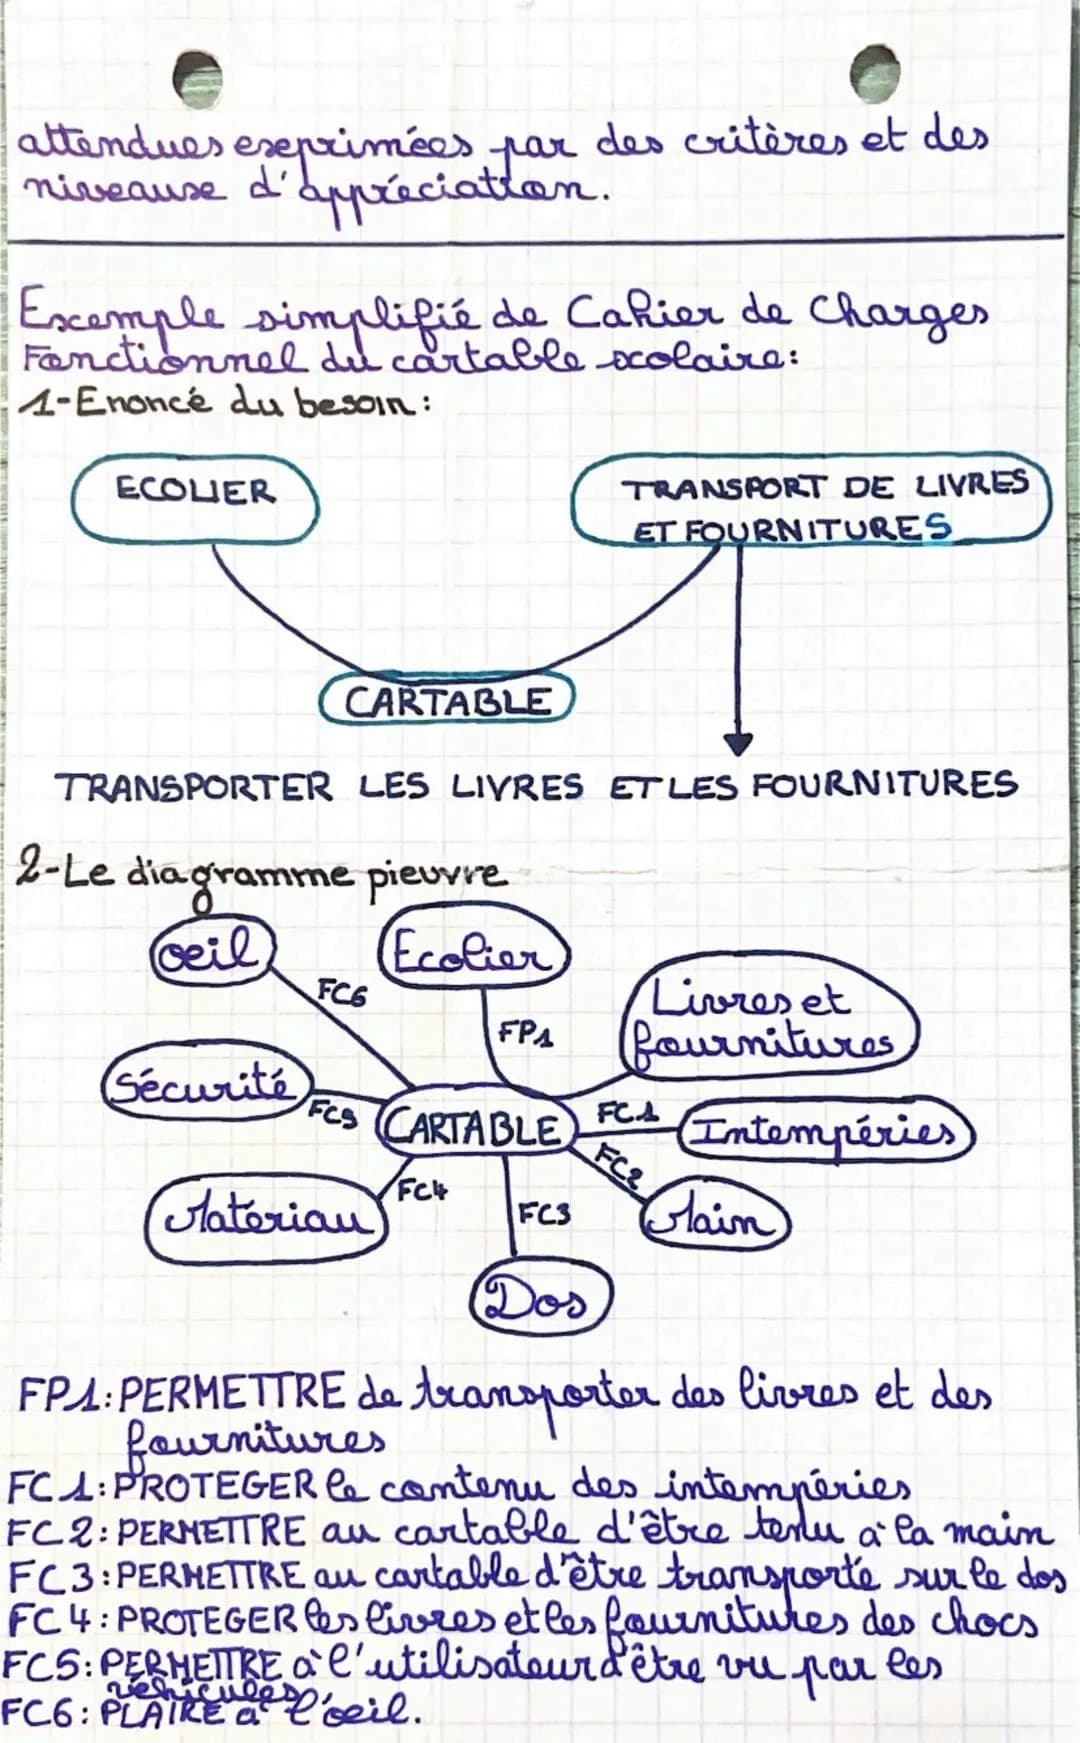 attendues exprimées par des critères et des
niveaux d'appréciation.
Exemple simplifié de Cahier de Charges
Fonctionnel du cartable scolaire:
1-Enoncé du besoin:
ECOLIER
TRANSPORT DE LIVRES
ET FOURNITURES
CARTABLE
TRANSPORTER LES LIVRES ET LES FOURNITURES
2-Le diagramme pieuvre
oeil
Ecolier
FC6
Livres et
fournitures
FP1
Sécurité
FC5
CARTABLE
FC1
Intempéries
FC2
Materiau
FC4
FC3
Main
Dos
FP1: PERMETTRE de transporter des livres et des
fournitures
FC1: PROTEGER le contenu des intempéries
FC2: PERMETTRE au cartable d'être tenu à la main
FC3: PERMETTRE au cartable d'être transporté sur le dos
FC4: PROTEGER les livres et les fournitures des chocs
FC5: PERMETTRE à l'utilisateur d'être vu par les
véhicules
FC6: PLAIRE à l'oeil.